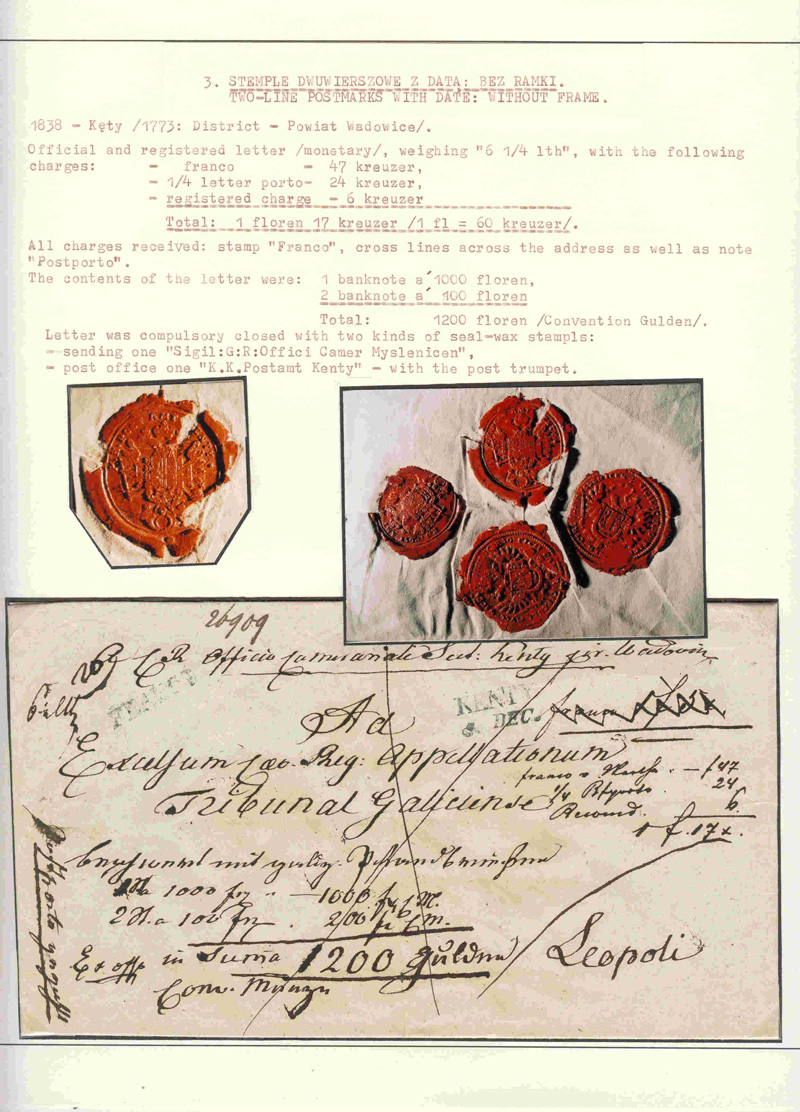 3. STEMPLE DWUWIERSZOWE Z DATĄ: BEZ RAMKI.
TWO-LINE POSTMARKS WITH DATE: WITHOUT FRAME.
1838 - Kęty /1773: District - Powiat Wadowice/.
Official and registered letter /monetary/, weighing "6 1/4 lth", with the following
charges: - franco - 47 kreuzer,
- 1/4 letter porto- 24 kreuzer,
- registered charge - 6 kreuzer
Total: 1 floren 17 kreuzer /1 fl = 60 kreuzer/.
All charges received: stamp "Franco", cross lines across the address as well as note
"Postporto".
The contents of the letter were: 1 banknote a´1000 floren,
2 banknote a´ 100 floren
Total: 1200 floren /Convention Gulden/.
Letter was compulsory closed with two kinds of seal-wax stampls:
- sending one "Sigil:G:R:Offici Camer Myslenicen",
- post office one "K.K.Postamt Kenty" - with the post trumpet.
26909
CR Officio Camerariali Sub: Kenty
KENTY
DEC.
Ad
Excelsum Cæs. Reg: Appellationum
franco 47
1/4 24
Tribunal Galiciense
6.
1 f. 17 x.
mit galiz.
1000 1000
2 St. a 100 200
Ex offo in Suma 1200 Gulden
Conv. Münze
Leopoli